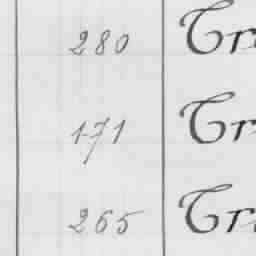 280 Tr
171 Tr
265 Tr